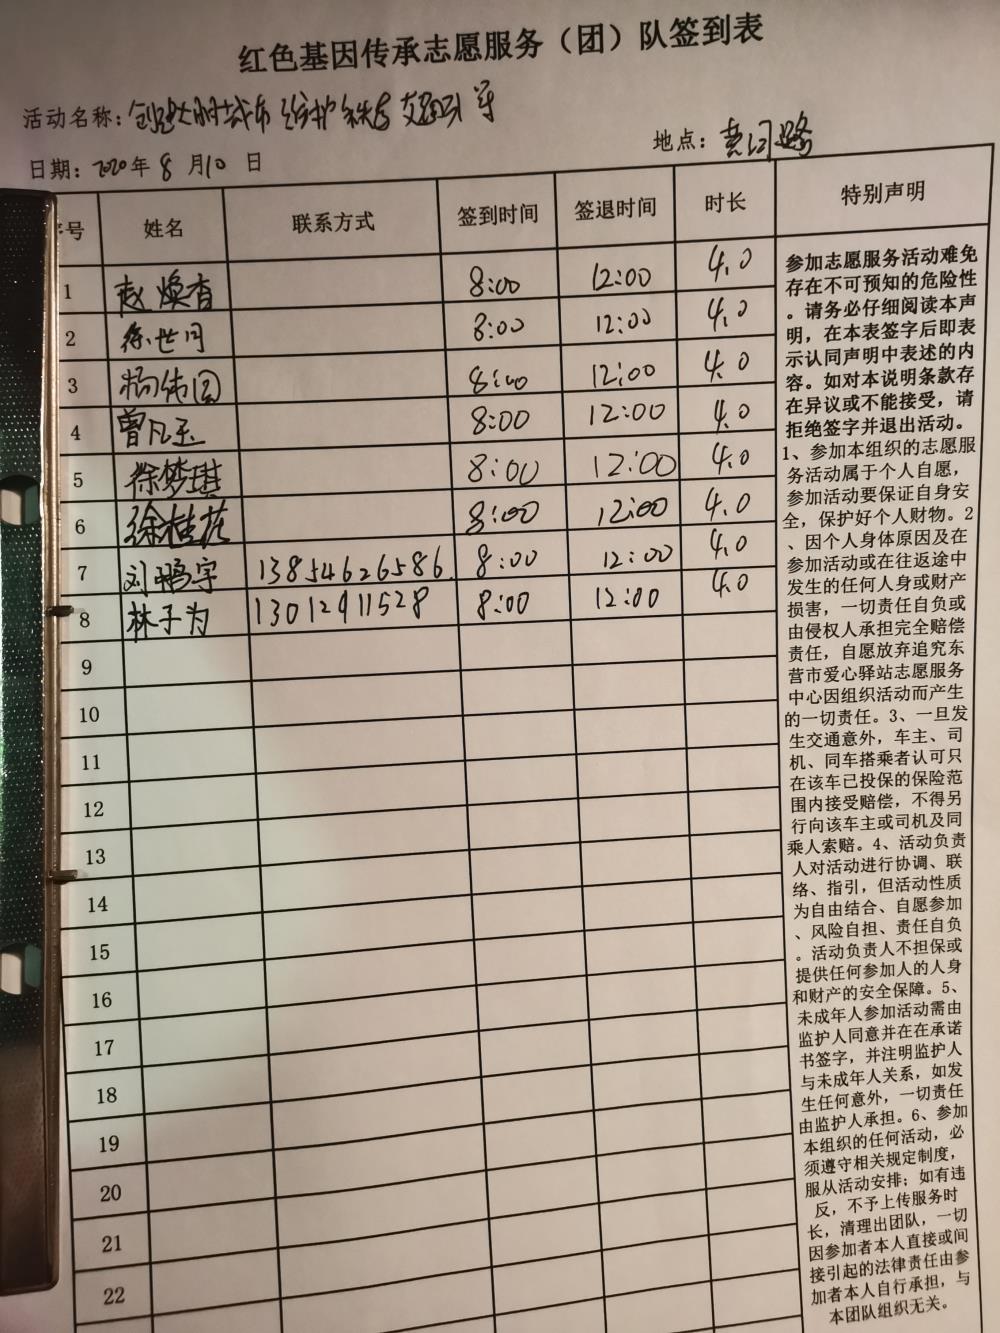 红色基因传承志愿服务（团）队签到表
活动名称：创建文明城市 维护秩序 交通引导
地点：黄河路
日期：2020年 8 月10 日
序号 姓名 联系方式 签到时间 签退时间 时长 特别声明
1 赵焕香 8:00 12:00 4.0
2 徐世月 8:00 12:00 4.0
3 杨伟园 8:00 12:00 4.0
4 曾凡玉 8:00 12:00 4.0
5 徐梦琪 8:00 12:00 4.0
6 徐桂花 8:00 12:00 4.0
7 刘鹏宇 13854626586. 8:00 12:00 4.0
8 林子为 13012911528 8:00 12:00 4.0
9
10
11
12
13
14
15
16
17
18
19
20
21
22
参加志愿服务活动难免
存在不可预知的危险性
。请务必仔细阅读本声
明，在本表签字后即表
示认同声明中表述的内
容。如对本说明条款存
在异议或不能接受，请
拒绝签字并退出活动。
1、参加本组织的志愿服
务活动属于个人自愿，
参加活动要保证自身安
全，保护好个人财物。2
、因个人身体原因及在
参加活动或在往返途中
发生的任何人身或财产
损害，一切责任自负或
由侵权人承担完全赔偿
责任，自愿放弃追究东
营市爱心驿站志愿服务
中心因组织活动而产生
的一切责任。3、一旦发
生交通意外，车主、司
机、同车搭乘者认可只
在该车已投保的保险范
围内接受赔偿，不得另
行向该车主或司机及同
乘人索赔。4、活动负责
人对活动进行协调、联
络、指引，但活动性质
为自由结合、自愿参加
、风险自担、责任自负
。活动负责人不担保或
提供任何参加人的人身
和财产的安全保障。5、
未成年人参加活动需由
监护人同意并在在承诺
书签字，并注明监护人
与未成年人关系，如发
生任何意外，一切责任
由监护人承担。6、参加
本组织的任何活动，必
须遵守相关规定制度，
服从活动安排；如有违
反，不予上传服务时
长，清理出团队，一切
因参加者本人直接或间
接引起的法律责任由参
加者本人自行承担，与
本团队组织无关。